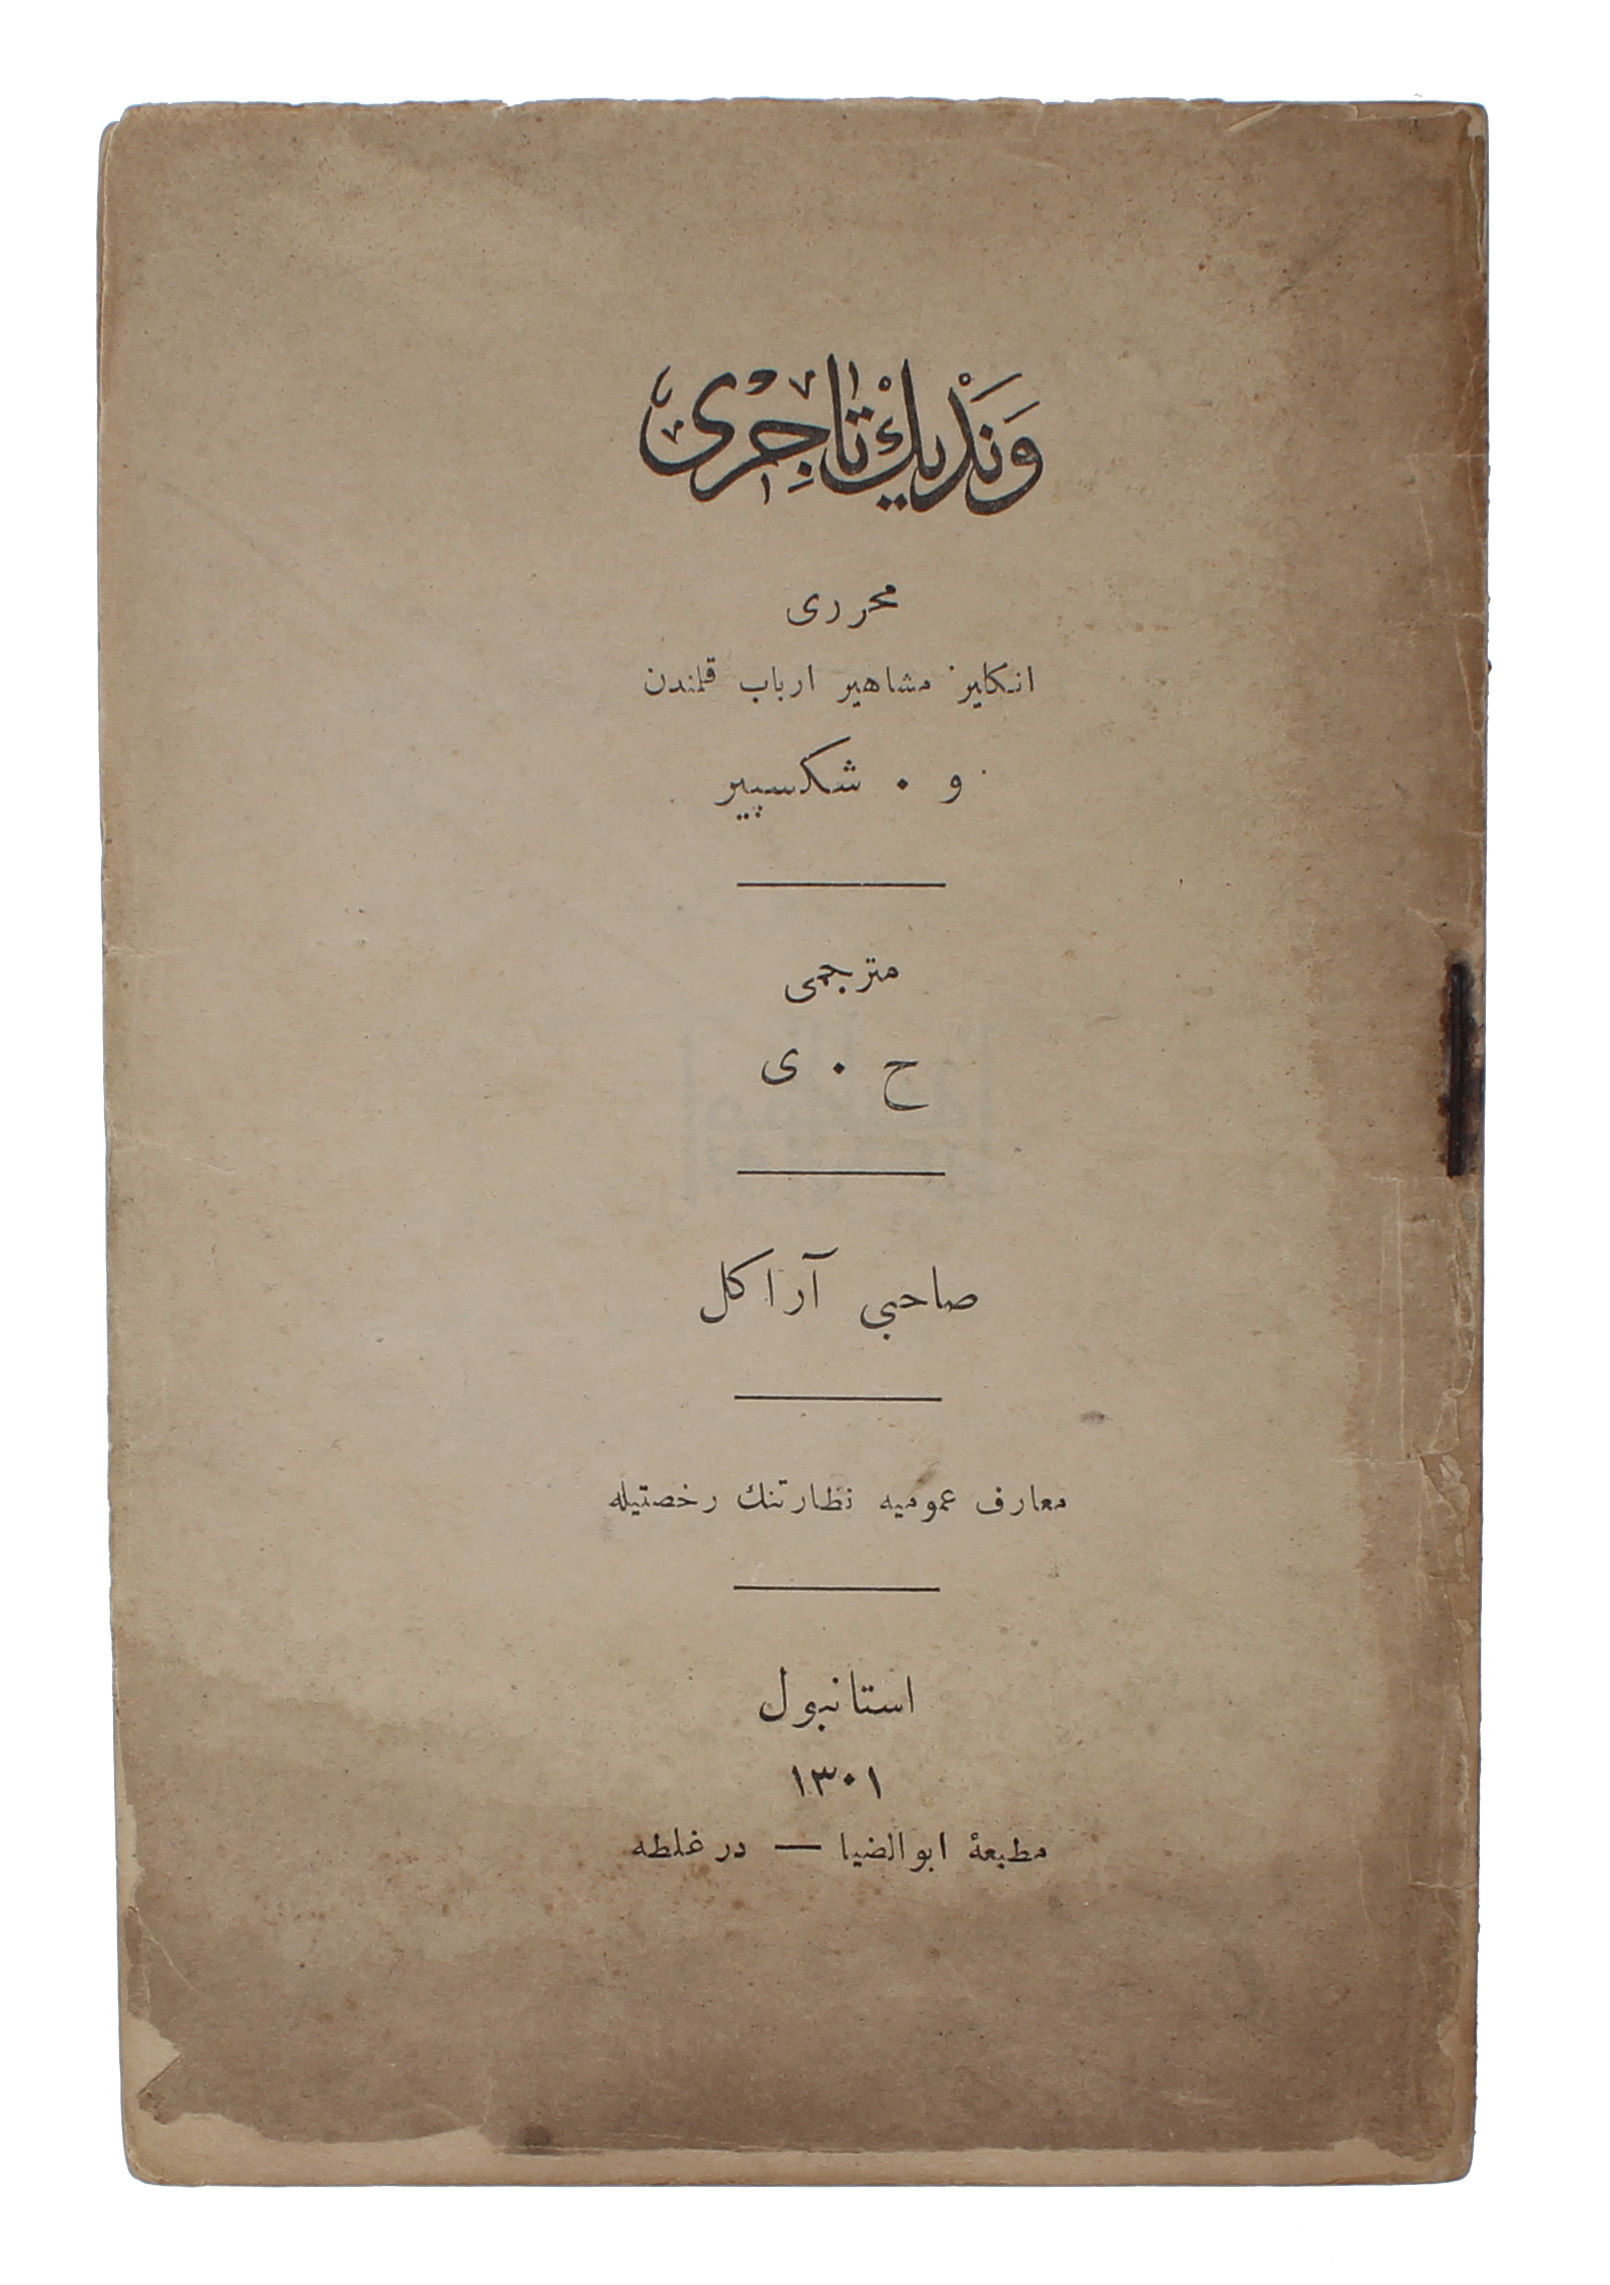 وَنَدْيك تاجِرى
محررى
انكليز مشاهير ارباب قلمندن
و . شكسپير
مترجمى
ح . ى
صاحبى آراكل
معارف عموميه نظارتنك رخصتيله
استانبول
١٣٠١
مطبعهٔ ابوالضيا — در غلطه